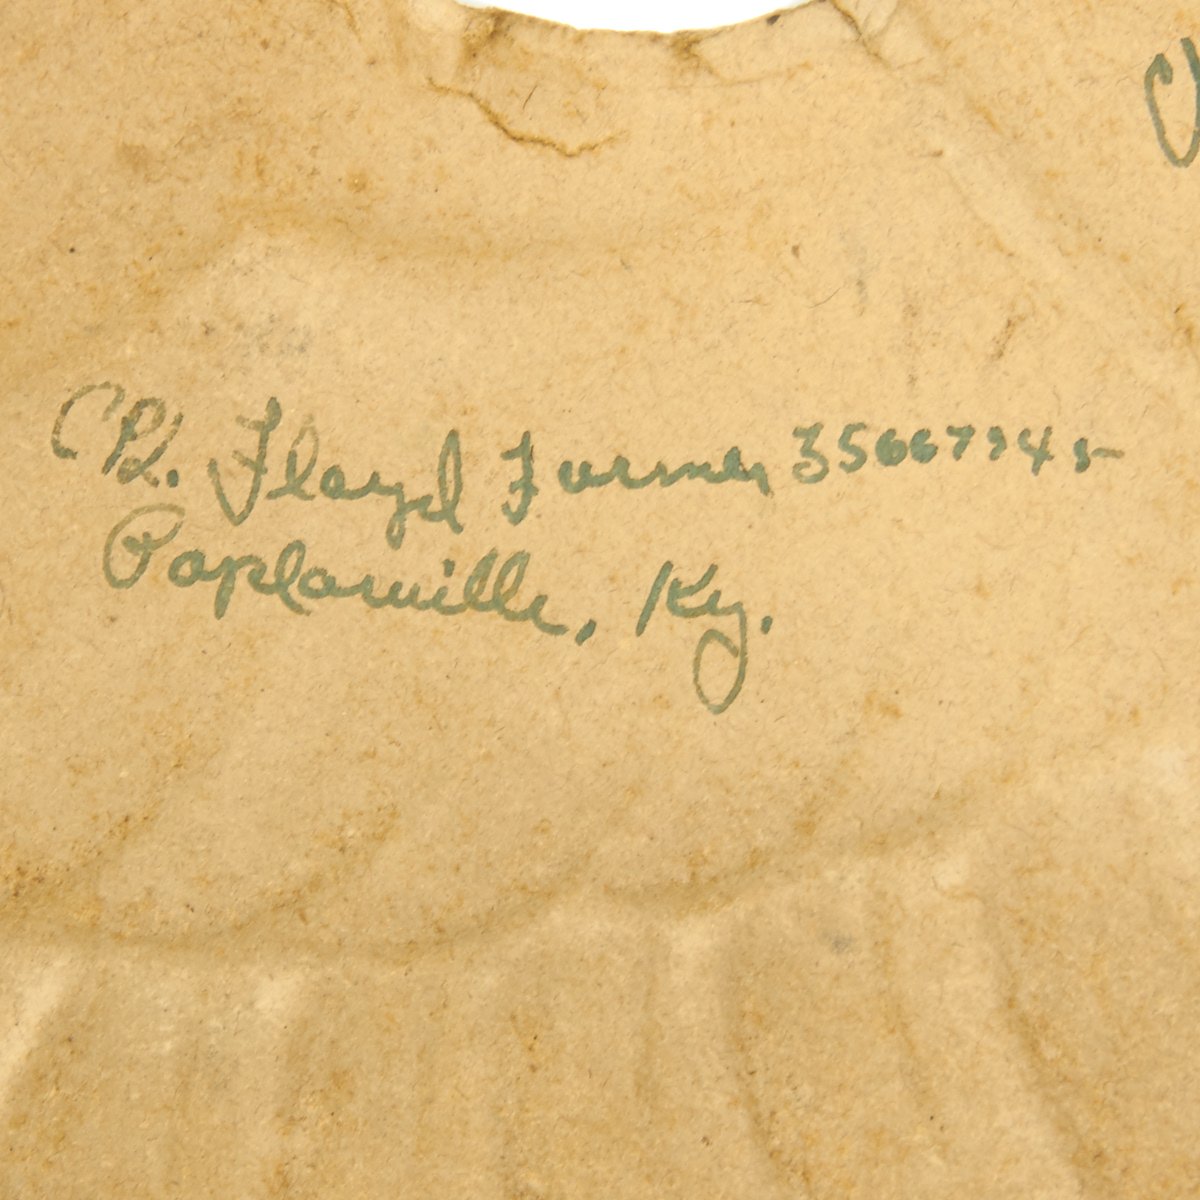 Cpl. Floyd Turner 35667945
Poplarville, Ky.